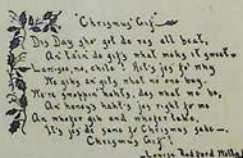 "Chrismus Gif"
Dis Day sho' got de res all beat,
An' tain' de gifs what meks it sweet.
Lawzee, no, chile! Hit's jes' fo' why
We gibs an' gits what no one buy.
We're swoppin' hahts, das what we be,
An' hones' hahts jes right fo' me
An' whofer gib and whofer take,
It's jes' de same fo' Chrismus sake—
Chrismus Gif'!
—Louise Redford